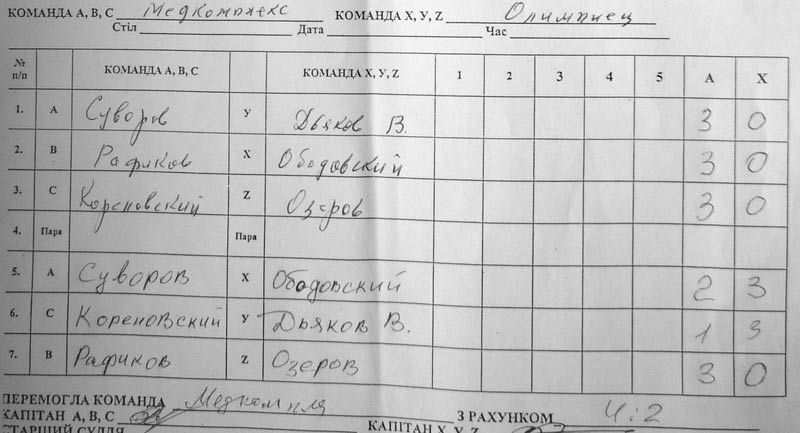 КОМАНДА А, В, С Медкомплекс КОМАНДА Х, У, Z Олимпиец
Стіл Дата Час
№ п/п КОМАНДА А, В, С КОМАНДА Х, У, Z 1 2 3 4 5 А Х
1. А Суворов У Дьяков В. 3 0
2. В Рафиков Х Ободовский 3 0
3. С Кореновский Z Озеров 3 0
4. Пара Пара
5. А Суворов Х Ободовский 2 3
6. С Кореновский У Дьяков В. 1 3
7. В Рафиков Z Озеров 3 0
ПЕРЕМОГЛА КОМАНДА Медкомпля З РАХУНКОМ 4:2
КАПІТАН А, В, С КАПІТАН Х, У, Z
СТАРШИЙ СУДДЯ